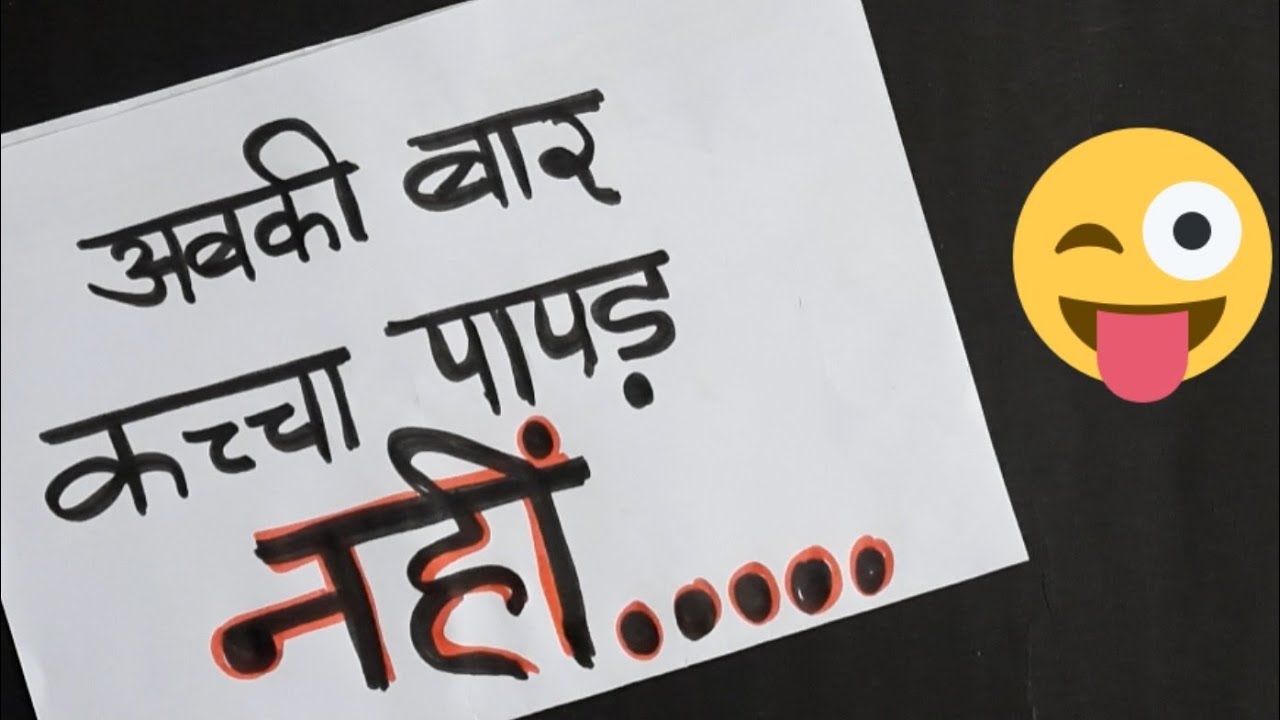 अबकी बार
कच्चा पापड़
नहीं.....